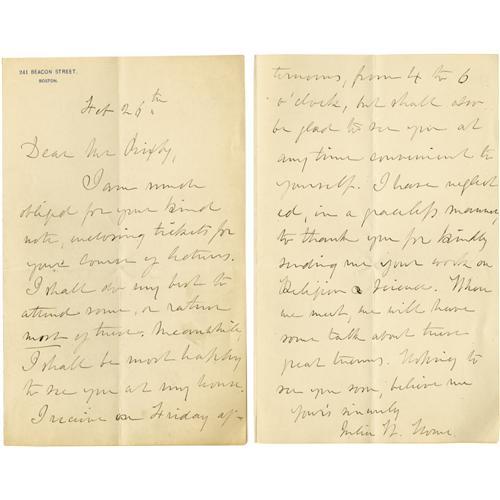 241 BEACON STREET,
BOSTON.
Feb 26th
Dear Mr Bixby,
I am much
obliged for your kind
note, enclosing tickets for
your course of lectures.
I shall do my best to
attend some, or rather
most of these. Meanwhile,
I shall be most happy
to see you at my house.
I receive on Friday af-
ternoons, from 4 to 6
o'clock, but shall also
be glad to see you at
any time convenient to
yourself. I have neglect
ed, in a graceless manner,
to thank you for kindly
sending me your work on
Religion & Science. When
we meet, we will have
some talk about these
great themes. Hoping to
see you soon, believe me
yours sincerely
Julia W. Howe.